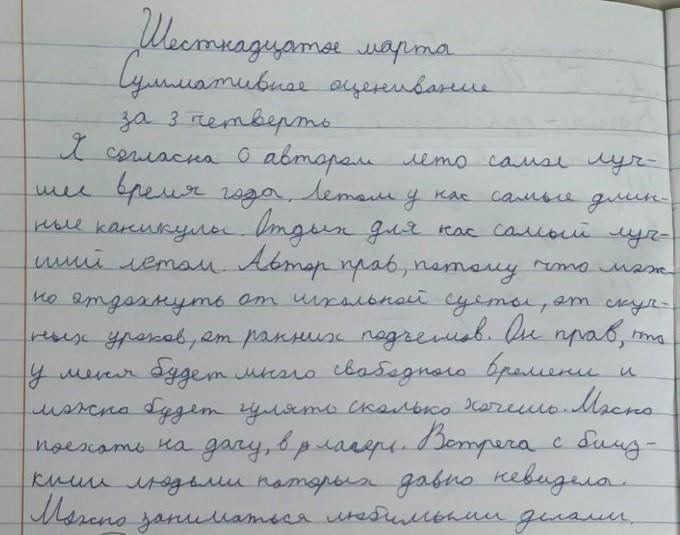 Шестнадцатое марта
Суммативное оценивание
за 3 четверть
Я согласна с автором лето самое луч-
шее время года. Летом у нас самые длин-
ные каникулы. Отдых для нас самый луч-
ший летом. Автор прав, потому что мож-
но отдохнуть от школьной суеты, от скуч-
ных уроков, от ранних подъемов. Он прав, что
у меня будет много свободного времени и
можно будет гулять сколько хочешь. Можно
поехать на дачу, в лагерь. Встреча с близ-
кими людьми которых давно невидела.
Можно заниматься любимыми делами.